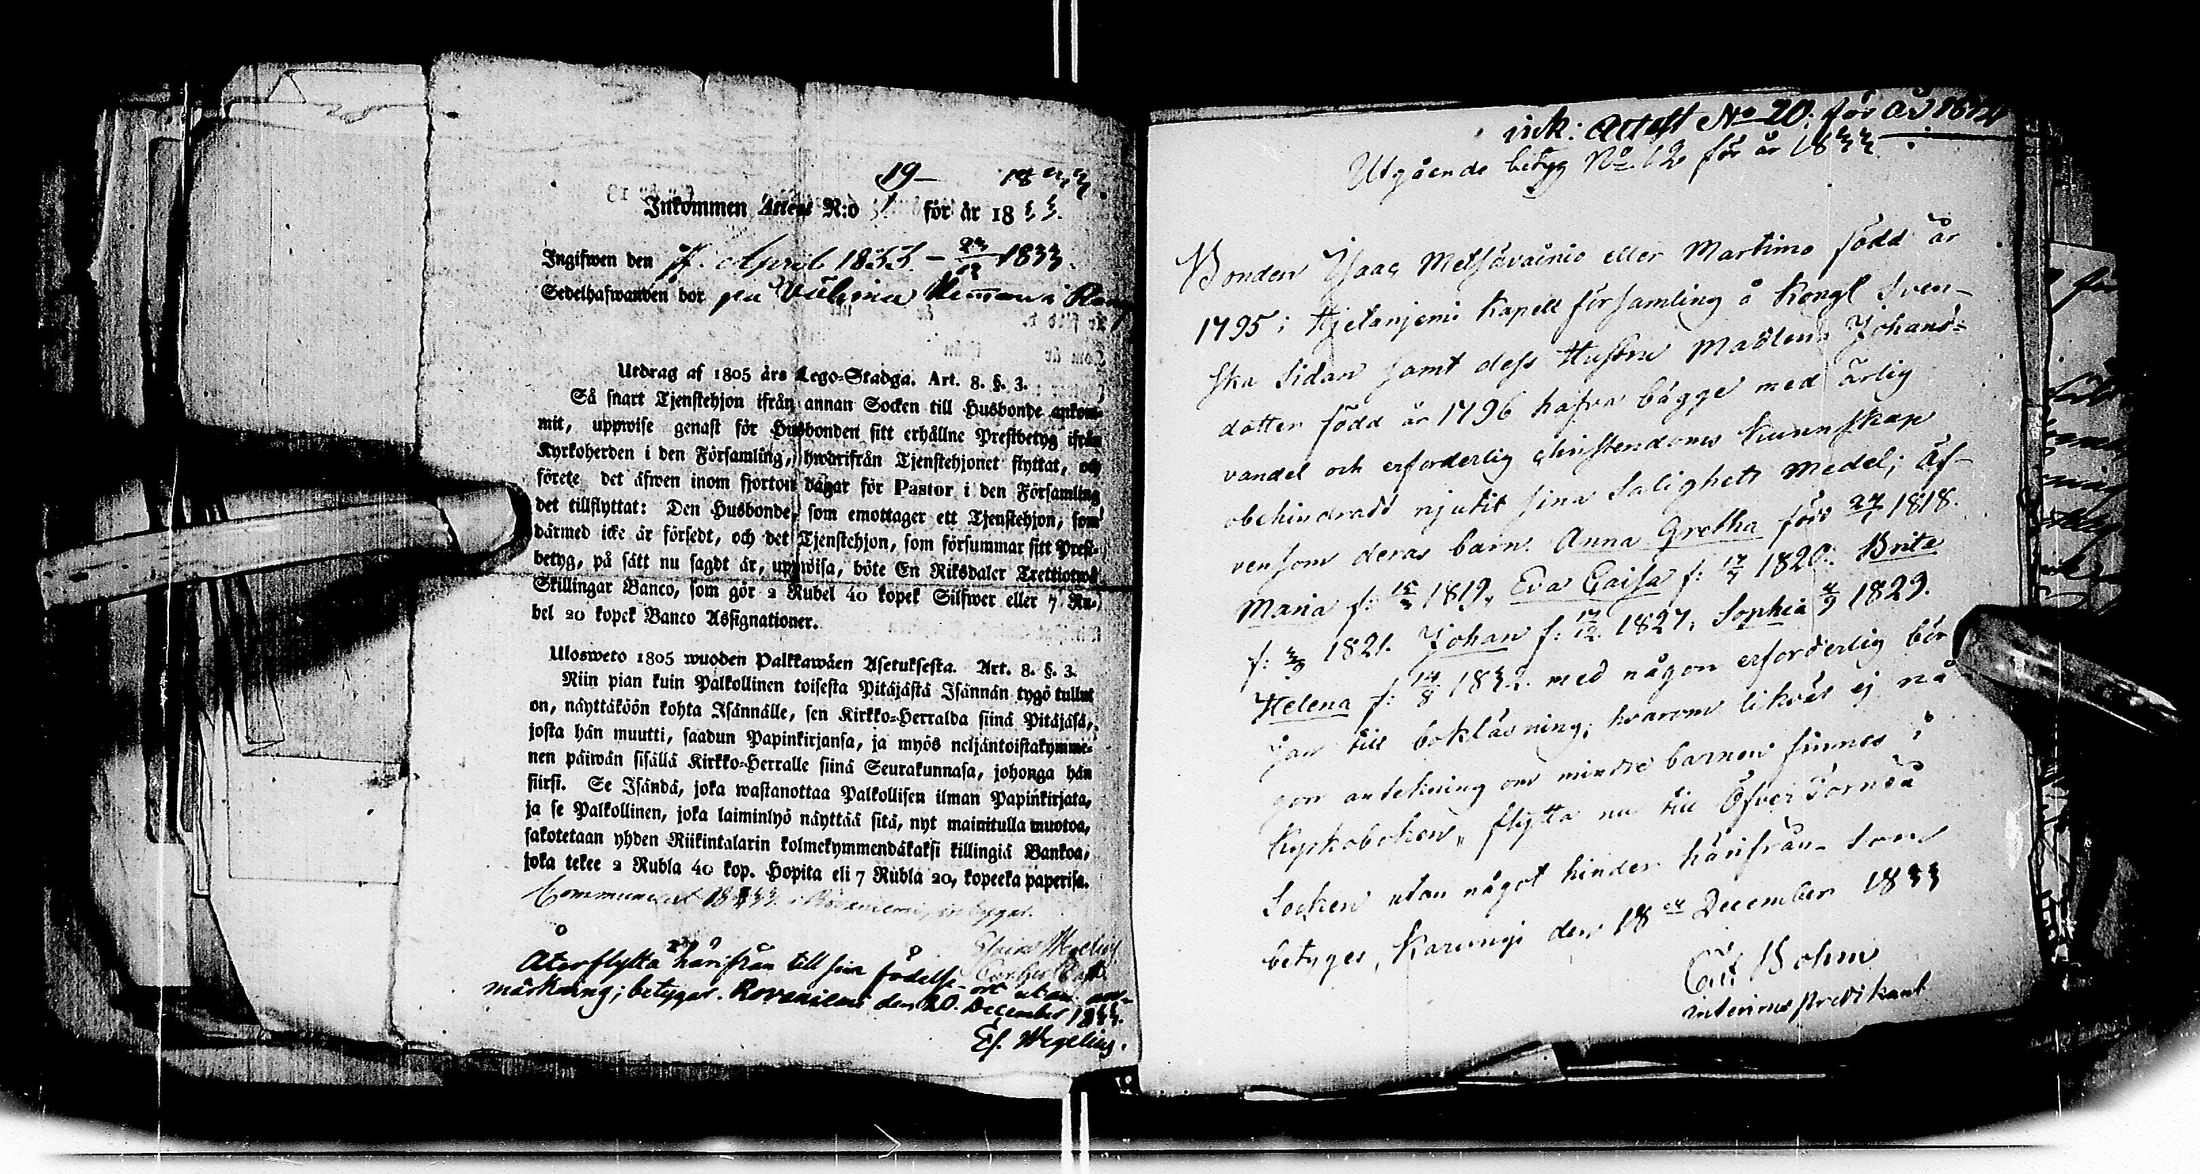 19 — 1833.
Inkommen Attest N:o 1 för år 1833.
Ingifwen den 7. April 1833. — 23/12 1833.
Sedelhafwanden bor
Utdrag af 1805 års Lego-Stadga. Art. 8. §. 3.
Så snart Tjenstehjon ifrån annan Socken till Husbonde ankom-
mit, uppwise genast för Husbonden sitt erhållne Prestbetyg ifrån
Kyrkoherden i den Församling, hwarifrån Tjenstehjonet flyttat, och
förete det äfwen inom fjorton dagar för Pastor i den Församling
det tillflyttat: Den Husbonde, som emottager ett Tjenstehjon, som
därmed icke är försedt, och det Tjenstehjon, som försummar sitt Prest-
betyg, på sätt nu sagdt är, uppwisa, böte En Riksdaler Trettiotwå
Skillingar Banco, som gör 2 Rubel 40 kopek Silfwer eller 7 Ru-
bel 20 kopek Banco Assignationer.
Ulosweto 1805 wuoden Palkkawäen Asetuksesta. Art. 8. §. 3.
Niin pian kuin Palkollinen toisesta Pitäjästä Isännän tygö tullut
on, näyttäköön kohta Isännälle, sen Kirkko-Herralda siinä Pitäjäsä,
josta hän muutti, saadun Papinkirjansa, ja myös neljäntoistakymme-
nen päiwän sisällä Kirkko-Herralle siinä Seurakunnasa, johonga hän
siirsi. Se Isändä, joka wastanottaa Palkollisen ilman Papinkirjata,
ja se Palkollinen, joka laiminlyö näyttää sitä, nyt mainitulla muotoa,
sakotetaan yhden Riikintalarin kolmekymmendäkaksi killingiä Bankoa,
joka tekee 2 Rubla 40 kop. Hopita eli 7 Rubla 20, kopeeka paperisa.
Communicerat 1833 i Rovaniemi, betygar.
Återflytta härifrån till sin födelse-ort utan an-
märkning; betygar. Rovaniemi den 20. December 1833.
Es. Wegelius.
ink: Attest No 20. för år 1834
Utgående betyg No 12 för år 1833
Bonden Isaac Metsävainio eller Martimo född år
1795 i Hjetanjemi Kapell församling å Kongl Sven-
ska Sidan samt dess Hustru Madlena Johans-
dotter född år 1796 hafva bägge med ärlig
vandel och erforderlig christendoms kunnskap
obehindradt njutit sina Salighets medel; äf-
vensom deras barn Anna Gretha född 27/1 1818.
Maria f: 15/3 1819, Eva Caisa f: 17/7 1820. Brita
f: 3/9 1821. Johan f: 17/12 1827, Sophia 4/9 1829.
Helena f: 14/8 1832. med någon erforderlig bör-
jan till bokläsning; hvarom likväl ej nå
gon antekning om mindre barnen finnes i
Kyrkoboken, flytta nu till Öfver Torneå
Socken utan något hinder härifrån som
betyges, Karungi den 18 December 1833
Bohm
interims predikant